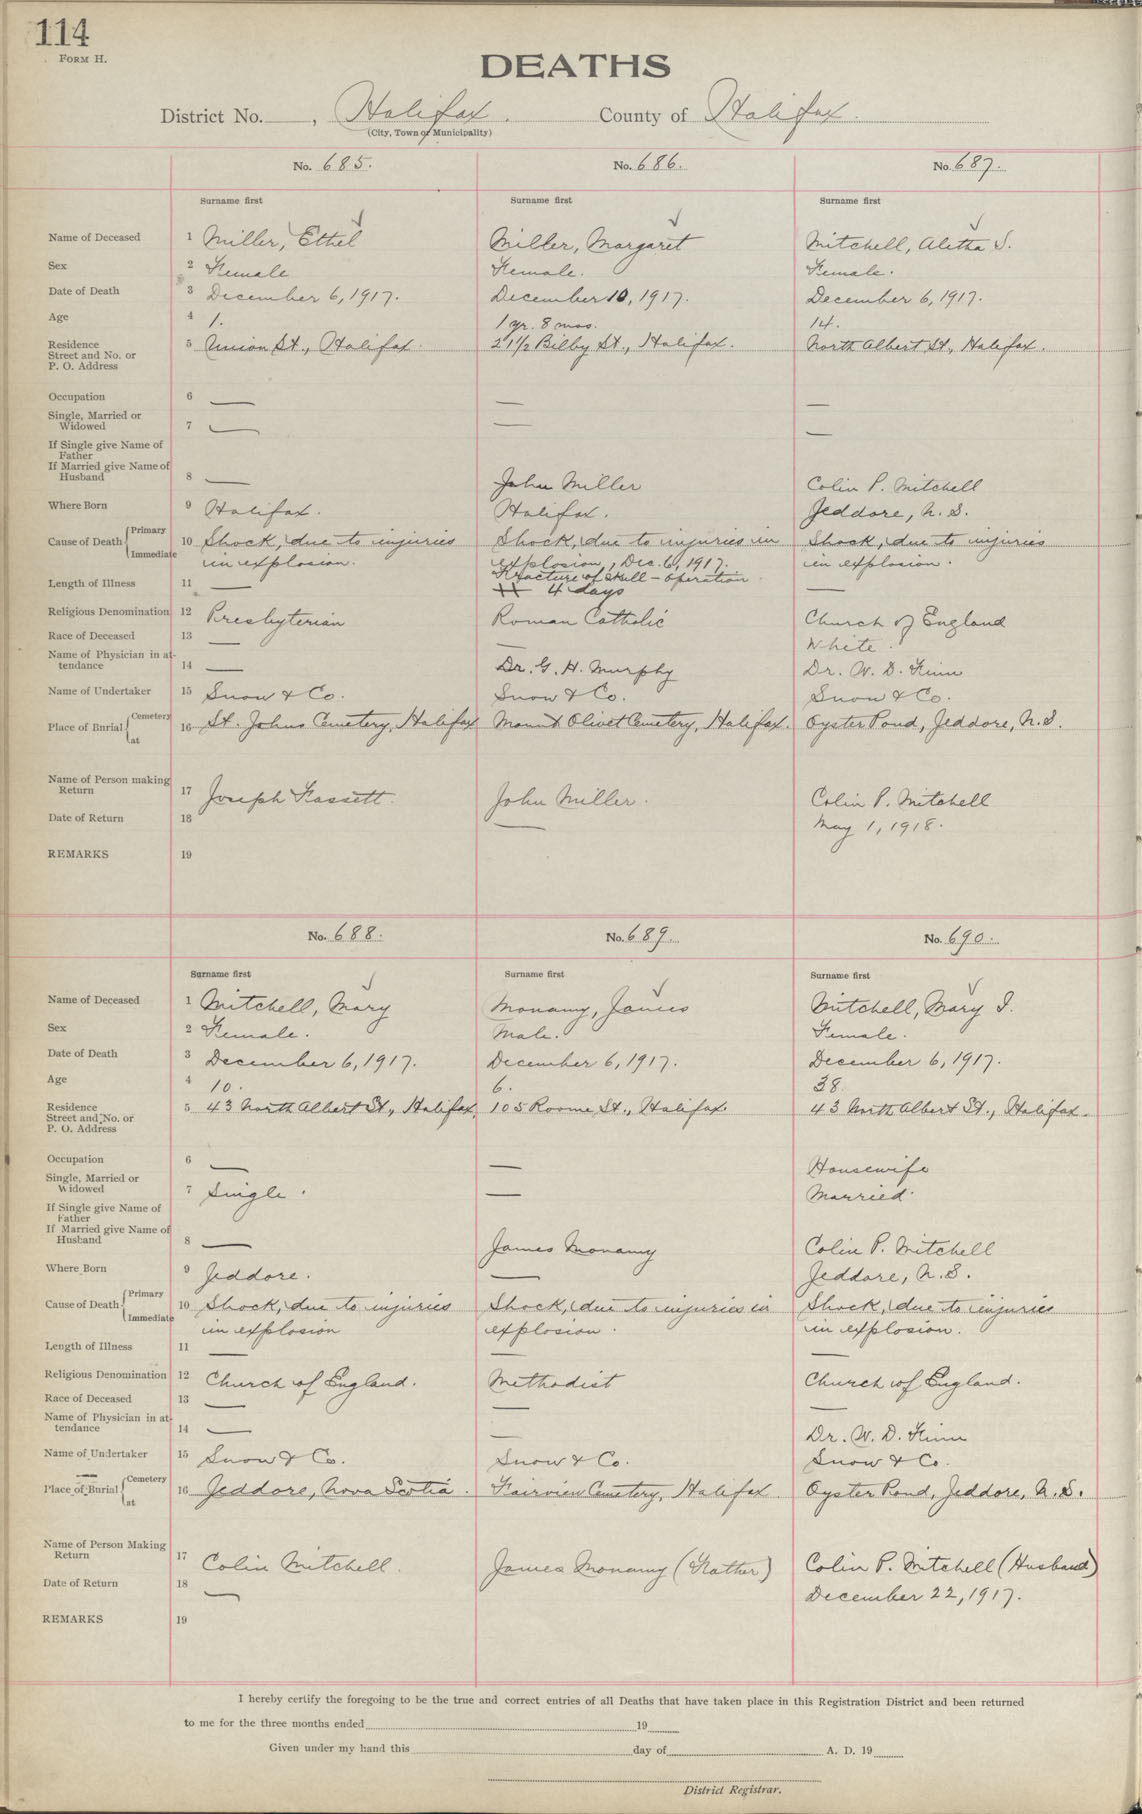 114
FORM H.
DEATHS
District No. , Halifax. County of Halifax.
(City, Town or Municipality)
No. 685. No. 686. No. 687.
Surname first Surname first Surname first
Name of Deceased 1 Miller, Ethel Miller, Margaret Mitchell, Aletha S.
Sex 2 Female Female. Female.
Date of Death 3 December 6, 1917. December 10, 1917. December 6, 1917.
Age 4 1. 1 yr. 8 mos. 14.
Residence 5 Union St., Halifax. 21½ Bilby St., Halifax. North Albert St., Halifax.
Street and No. or
P. O. Address
Occupation 6 — — —
Single, Married or
Widowed 7 — — —
If Single give Name of
Father
If Married give Name of
Husband 8 — John Miller Colin P. Mitchell
Where Born 9 Halifax. Halifax. Jeddore, N. S.
Cause of Death { Primary 10 Shock, due to injuries Shock, due to injuries in Shock, due to injuries
Immediate in explosion. explosion, Dec. 6, 1917. in explosion.
Fracture of skull – operation
Length of Illness 11 — 4 days —
Religious Denomination 12 Presbyterian Roman Catholic Church of England
Race of Deceased 13 — — White.
Name of Physician in at-
tendance 14 — Dr. G. H. Murphy Dr. W. D. Finn
Name of Undertaker 15 Snow & Co. Snow & Co. Snow & Co.
Place of Burial { Cemetery 16 St. Johns Cemetery, Halifax Mount Olivet Cemetery, Halifax. Oyster Pond, Jeddore, N. S.
at
Name of Person making
Return 17 Joseph Fassett. John Miller. Colin P. Mitchell
Date of Return 18 — May 1, 1918.
REMARKS 19
No. 688. No. 689. No. 690.
Surname first Surname first Surname first
Name of Deceased 1 Mitchell, Mary Monamy, James Mitchell, Mary I.
Sex 2 Female. Male. Female.
Date of Death 3 December 6, 1917. December 6, 1917. December 6, 1917.
Age 4 10. 6. 38
Residence 5 43 North Albert St., Halifax. 105 Roome St., Halifax. 43 North Albert St., Halifax.
Street and No. or
P. O. Address
Occupation 6 — — Housewife
Single, Married or
Widowed 7 Single. — Married.
If Single give Name of
Father
If Married give Name of
Husband 8 — James Monamy Colin P. Mitchell
Where Born 9 Jeddore. — Jeddore, N. S.
Cause of Death { Primary 10 Shock, due to injuries Shock, due to injuries in Shock, due to injuries
Immediate in explosion explosion. in explosion.
Length of Illness 11 — — —
Religious Denomination 12 Church of England. Methodist Church of England.
Race of Deceased 13 — — —
Name of Physician in at-
tendance 14 — — Dr. W. D. Finn
Name of Undertaker 15 Snow & Co. Snow & Co. Snow & Co.
Place of Burial { Cemetery 16 Jeddore, Nova Scotia. Fairview Cemetery, Halifax. Oyster Pond, Jeddore, N. S.
at
Name of Person Making
Return 17 Colin Mitchell. James Monamy (Father) Colin P. Mitchell (Husband)
Date of Return 18 — December 22, 1917.
REMARKS 19
I hereby certify the foregoing to be the true and correct entries of all Deaths that have taken place in this Registration District and been returned
to me for the three months ended 19
Given under my hand this day of A. D. 19
District Registrar.